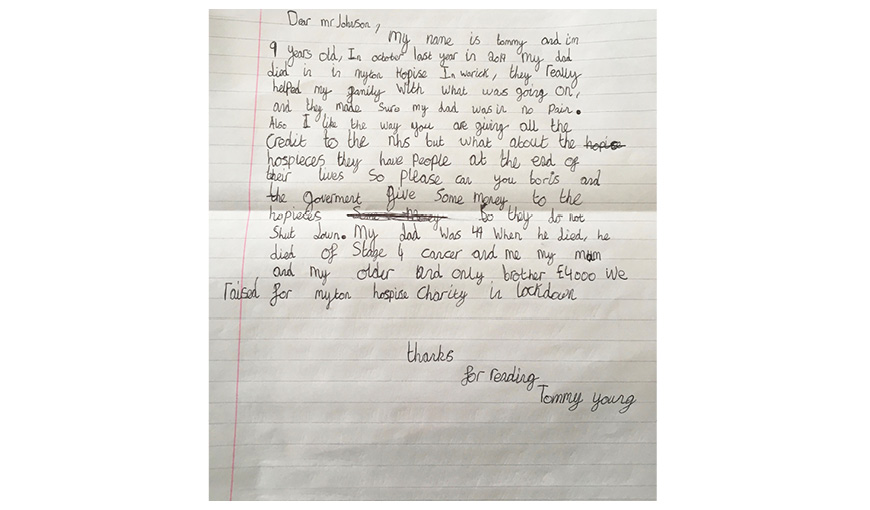 Dear mr Johnson,
My name is tommy and im
9 years old, In october last year in 2019 my dad
died in in myton Hopise In warick, they really
helped my family with what was going on,
and they made sure my dad was in no Pain.
Also I like the way you are giving all the
Credit to the nhs but what about the hopise
hospieces they have people at the end of
their lives So please can you boris and
the goverment give Some money to the
hopieces Some money So they do not
Shut down. My dad was 49 When he died, he
died of Stage 4 cancer and me my mum
and my older and only brother £4000 We
raised for myton hospise Charity in lockdown
thanks
for reading
Tommy young